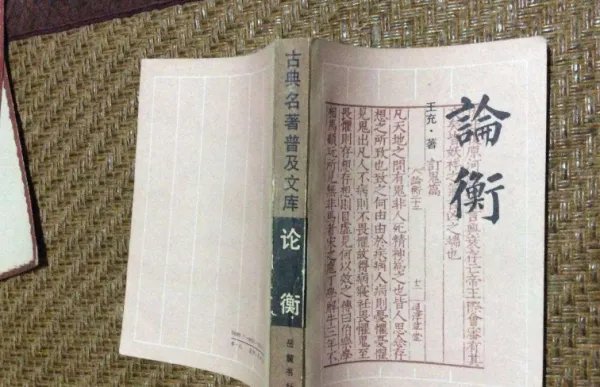 古典名著普及文库
论衡
岳麓书
論衡
王充·著
訂鬼篇
凡天地之間有鬼非人死精神為之也皆人思念存
想之所致也致之何由由於疾病人病則憂懼憂懼
見鬼出凡人不病則不畏懼故得病寢衽畏懼鬼至
畏懼則存想存想則目虛見何以效之傳曰伯樂學
相馬顧玩所見無非馬者宋之庖丁學解牛三年不